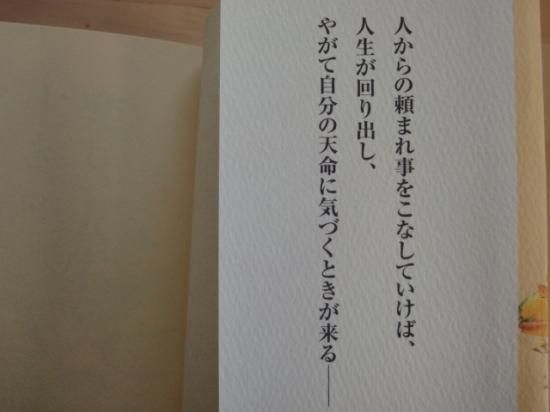 人からの頼まれ事をこなしていけば、
人生が回り出し、
やがて自分の天命に気づくときが来る――